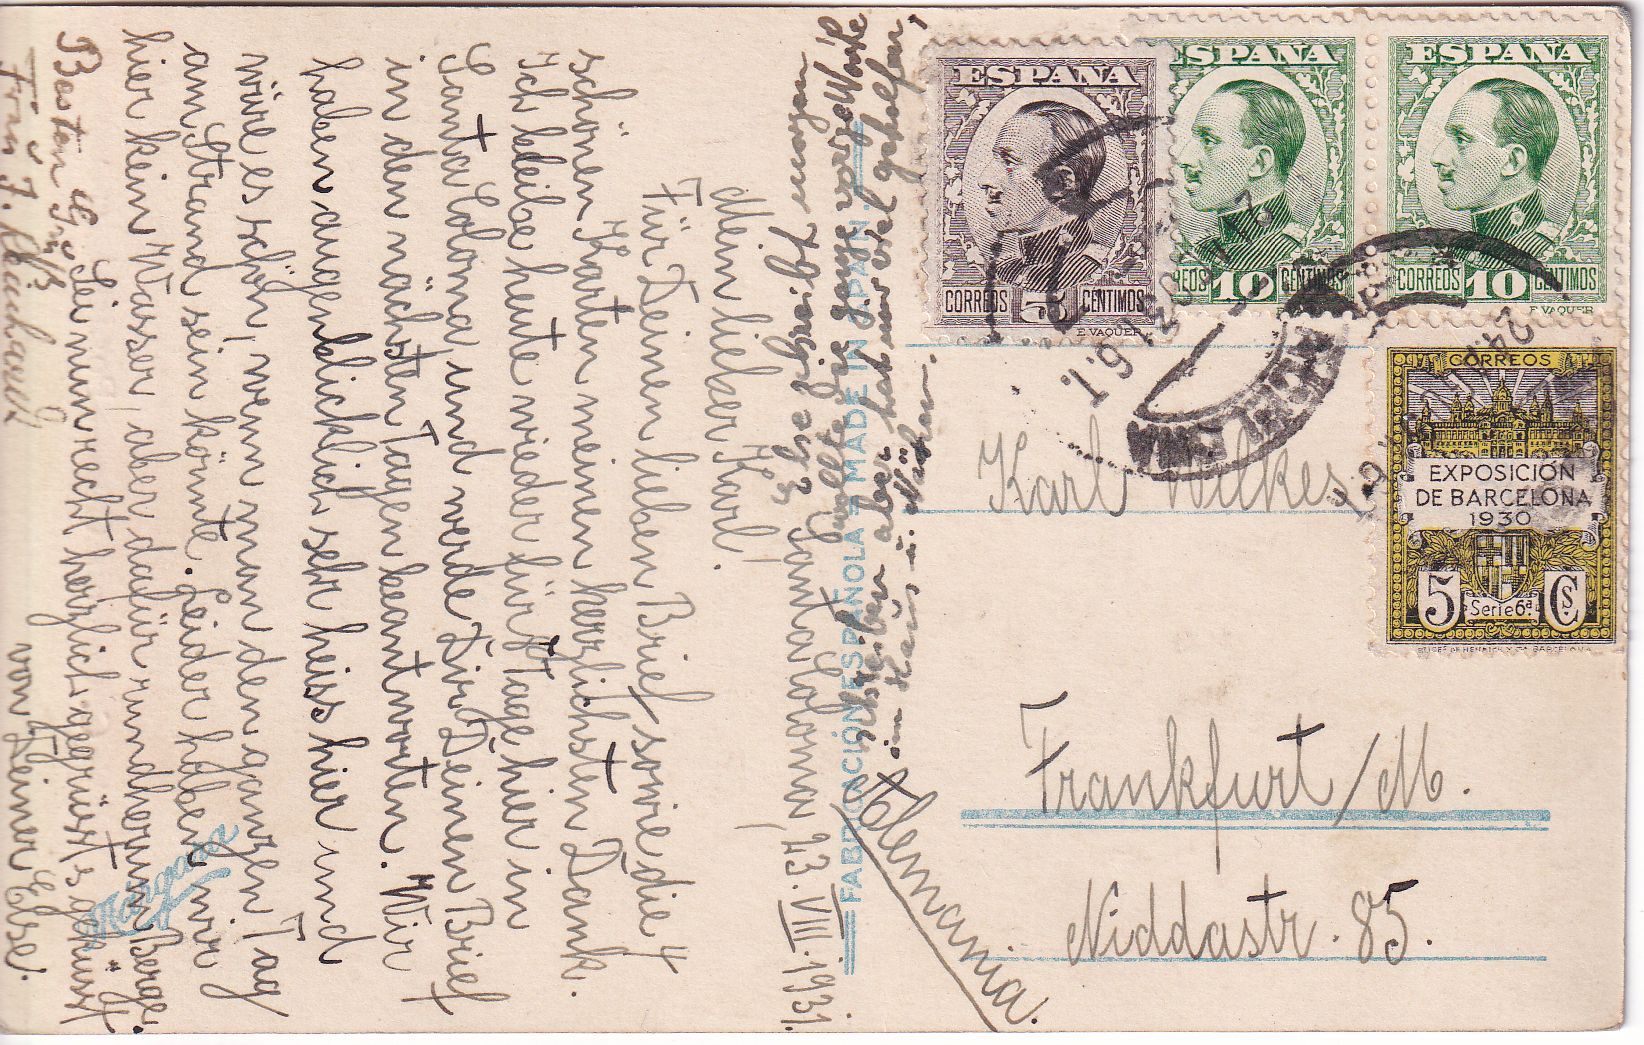 Santa Coloma, 23.VIII.1931.
Mein lieber Karl!
Für Deinen lieben Brief sowie die 4
schönen Karten meinen herzlichsten Dank.
Ich bleibe heute wieder fürs Tage hier in
Santa Coloma und werde Dir Deinen Brief
in den nächsten Tagen beantworten. Wir
haben augenblicklich sehr heiss hier und
wäre es schön, wenn man den ganzen Tag
am Strand sein könnte. Leider haben wir
hier kein Wasser, aber dafür rundherum Berge.
Sei nun recht herzlich gegrüsst & geküsst
von Deiner Else.
Besten Gruss
Frau J.
Ilse schreibt morgen
wollte die ganze vorige Woche
schreiben aber hat mir viel geholfen,
im Haus u. Nähen.
FABRICACIÓN ESPAÑOLA = MADE IN SPAIN
Margara
ESPAÑA
CORREOS 5 CENTIMOS
E. VAQUER
ESPAÑA
CORREOS 10 CENTIMOS
ESPAÑA
CORREOS 10 CENTIMOS
E. VAQUER
CORREOS
EXPOSICIÓN
DE BARCELONA
1930
5 Serie 6ª Cs.
Karl Wilkes
Frankfurt/M.
Niddastr. 85.
Alemania.